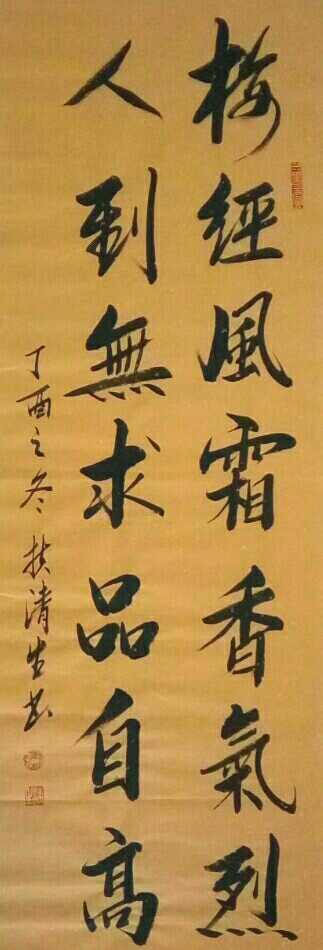 梅經風霜香氣烈
人到無求品自高
丁酉之冬 清生书